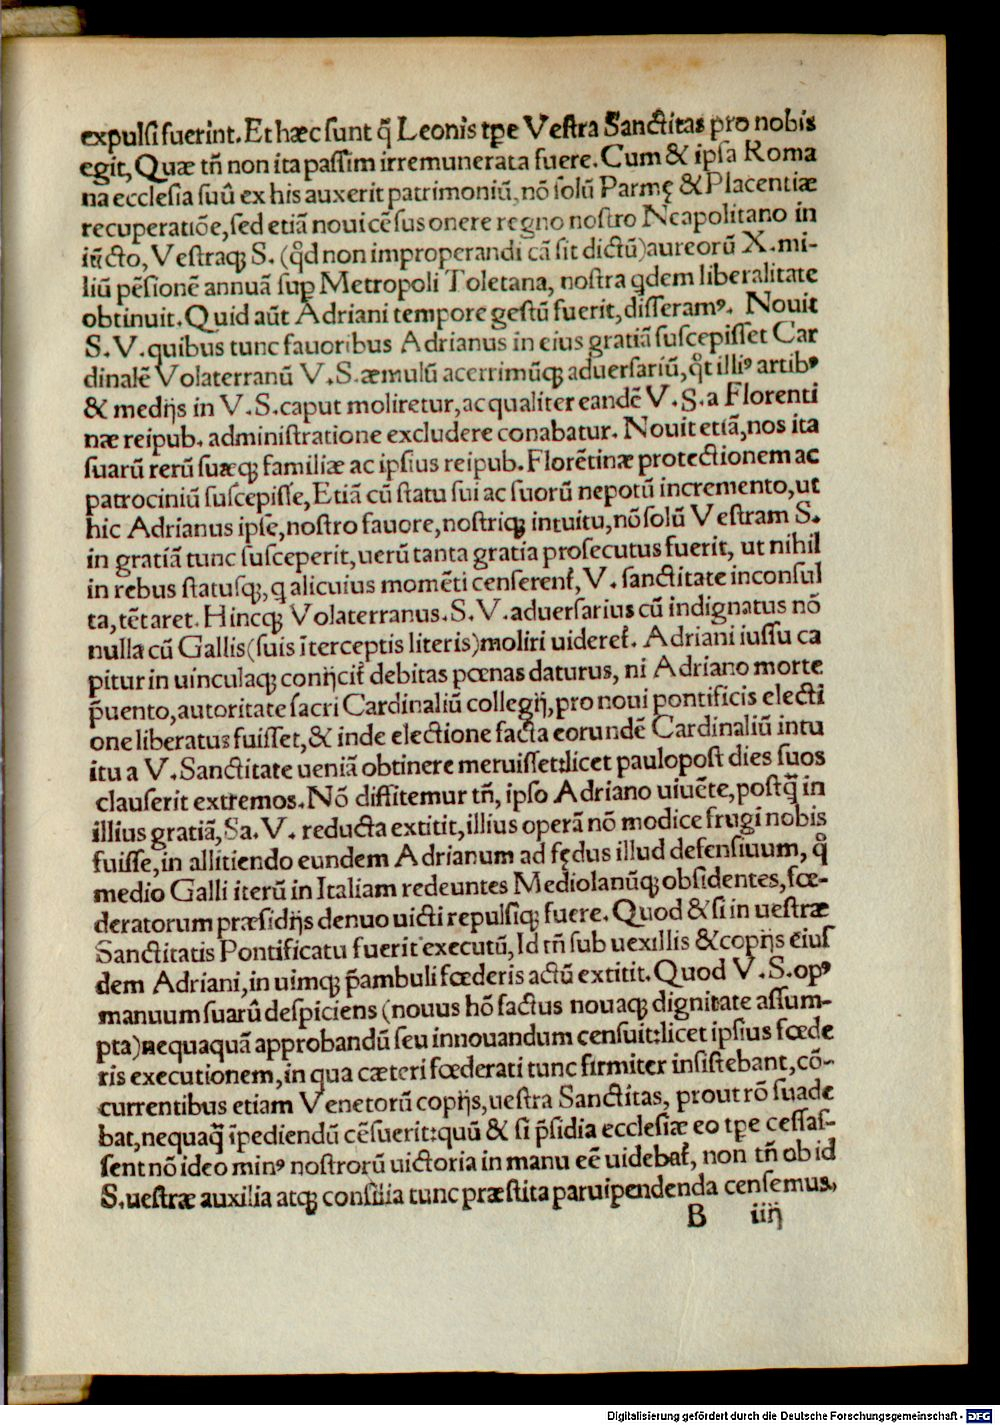 expulsi fuerint. Et hæc sunt q̃ Leonis tꝑe Vestra Sanctitas pro nobis
egit, Quæ tñ non ita passim irremunerata fuere. Cum & ipsa Roma
na ecclesia suũ ex his auxerit patrimoniũ, nõ solũ Parmę & Placentiæ
recuperatiõe, sed etiã noui cẽsus onere regno nostro Neapolitano in
iũcto, Vestraqꝫ S. (qd̾ non improperandi cã sit dictũ) aureorũ X. mi-
liũ pẽsionẽ annuã suꝑ Metropoli Toletana, nostra qdem liberalitate
obtinuit. Quid aũt Adriani tempore gestũ fuerit, disseramꝰ. Nouit
S. V. quibus tunc fauoribus Adrianus in eius gratiã suscepisset Car
dinalẽ Volaterranũ V. S. æmulũ acerrimũqꝫ aduersariũ, qt̾ illiꝰ artibꝰ
& medijs in V. S. caput moliretur, ac qualiter eandẽ V. S. a Florenti
næ reipub. administratione excludere conabatur. Nouit etiã, nos ita
suarũ rerũ suæqꝫ familiæ ac ipsius reipub. Florẽtinæ protectionem ac
patrociniũ suscepisse, Etiã cũ statu sui ac suorũ nepotũ incremento, ut
hic Adrianus ipse, nostro fauore, nostriqꝫ intuitu, nõ solũ Vestram S.
in gratiã tunc susceperit, uerũ tanta gratia prosecutus fuerit, ut nihil
in rebus statusqꝫ, q alicuius momẽti censerent᷑, V. sanctitate inconsul
ta, tẽtaret. Hincqꝫ Volaterranus. S. V. aduersarius cũ indignatus nõ
nulla cũ Gallis (suis ĩterceptis literis) moliri uideret᷑. Adriani iussu ca
pitur in uinculaqꝫ conijcit᷑ debitas pœnas daturus, ni Adriano morte
p̃uento, autoritate sacri Cardinaliũ collegij, pro noui pontificis electi
one liberatus fuisset, & inde electione facta eorundẽ Cardinaliũ intu
itu a V. Sanctitate ueniã obtinere meruisset: licet paulopost dies suos
clauserit extremos. Nõ diffitemur tñ, ipso Adriano uiuẽte, postq̃ in
illius gratiã, Sa. V. reducta extitit, illius operã nõ modice frugi nobis
fuisse, in allitiendo eundem Adrianum ad fędus illud defensiuum, q̊
medio Galli iterũ in Italiam redeuntes Mediolanũqꝫ obsidentes, fœ-
deratorum præsidijs denuo uicti repulsiqꝫ fuere. Quod & si in uestræ
Sanctitatis Pontificatu fuerit executũ, Id tñ sub uexillis & copijs eius
dem Adriani, in uimqꝫ p̃ambuli fœderis actũ extitit. Quod V. S. opꝰ
manuum suarũ despiciens (nouus hõ factus nouaqꝫ dignitate assum-
pta) nequaquã approbandũ seu innouandum censuit: licet ipsius fœde
ris executionem, in qua cæteri fœderati tunc firmiter insistebant, cõ-
currentibus etiam Venetorũ copijs, uestra Sanctitas, prout rõ suade
bat, nequaq̃ ĩpediendũ cẽsuerit: quũ & si p̃sidia ecclesiæ eo tꝑe cessas-
sent nõ ideo minꝰ nostrorũ uictoria in manu eẽ uidebat᷑, non tñ ob id
S. uestræ auxilia atqꝫ consilia tunc præstita paruipendenda censemus,
B iiij
Digitalisierung gefördert durch die Deutsche Forschungsgemeinschaft - DFG